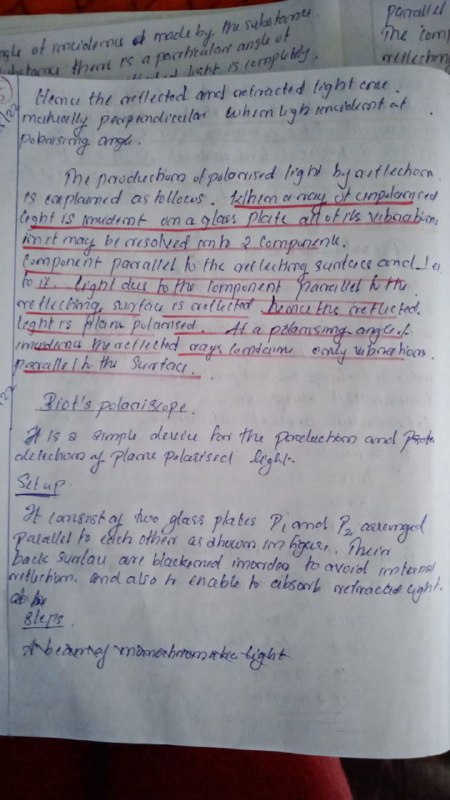 angle of incidence made by the substance.
substance there is a particular angle of
light is completely.
parallel
The comp
reflecting
Hence the reflected and refracted light are
mutually perpendicular when ligh incident at
polarising angle.
The production of polarised light by reflection
is explained as follows. When a ray of unpolarised
light is incident on a glass plate all of its vibration
in it may be resolved into 2 components.
Component parallel to the reflecting surface and ⊥
to it. Light due to the component parallel to the
reflecting surface is reflected hence the reflected
light is plane polarised. At a polarising angle of
incidence the reflected rays contains only vibrations
parallel to the surface.
Biot's polariscope.
It is a simple device for the production and
detection of plane polarised light.
Set up
It consist of two glass plates P₁ and P₂ arranged
parallel to each other as shown in figure. Their
back surface are blackened inorder to avoid internal
reflection. and also to enable to absorb refracted light.
Steps
A beam of monochromatic light